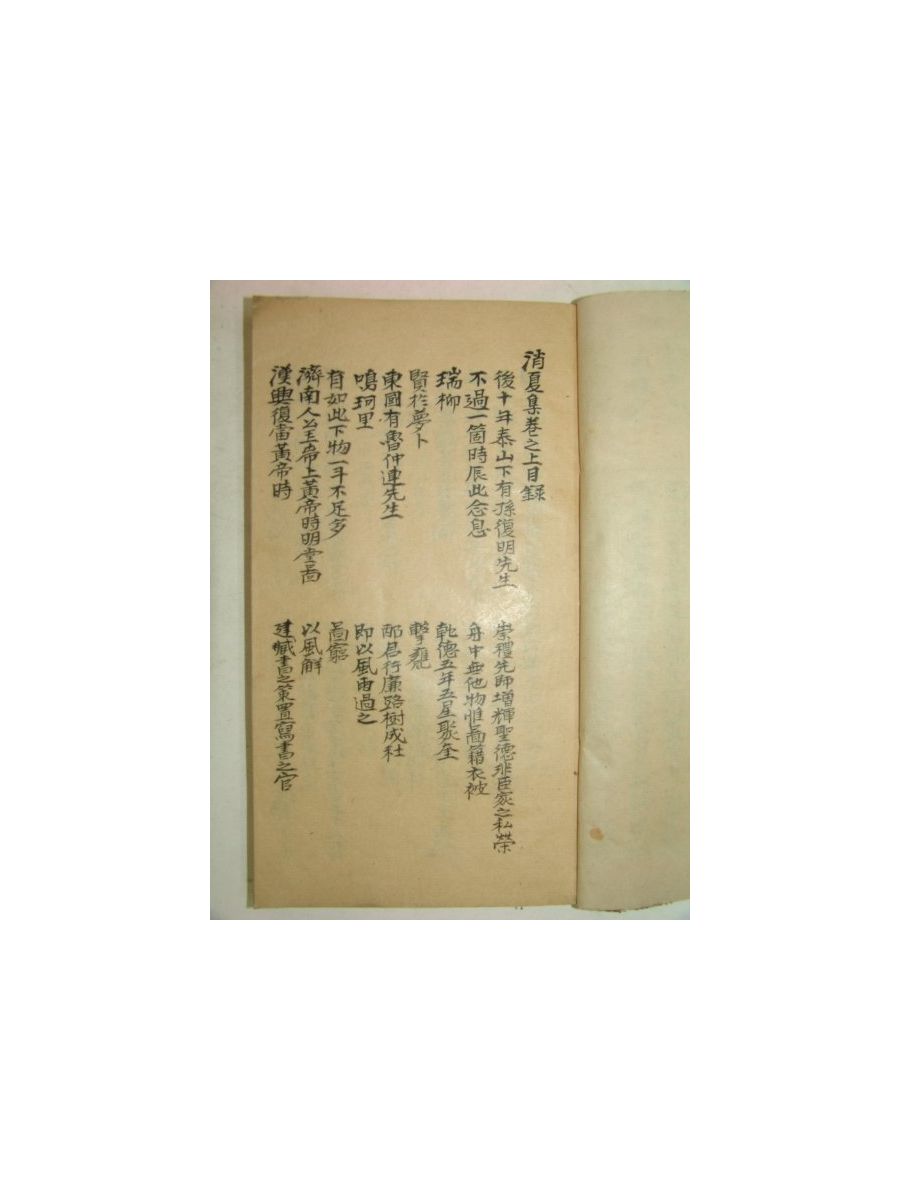 消夏集卷之上目録
後十年泰山下有孫復明先生
崇禮先師增輝聖德非臣家之私榮
不過一箇時辰此念息
舟中無他物惟啚籍衣被
瑞柳
乾德五年五星聚奎
賢於夢卜
擊甕
東國有魯仲連先生
邴君行廉路樹成社
鳴珂里
即以風雨過之
有如此下物一斗不足多
啚窮
濟南人公玉帶上黃帝時明堂啚
以風解
漢興復當黃帝時
建藏書之策置寫書之官